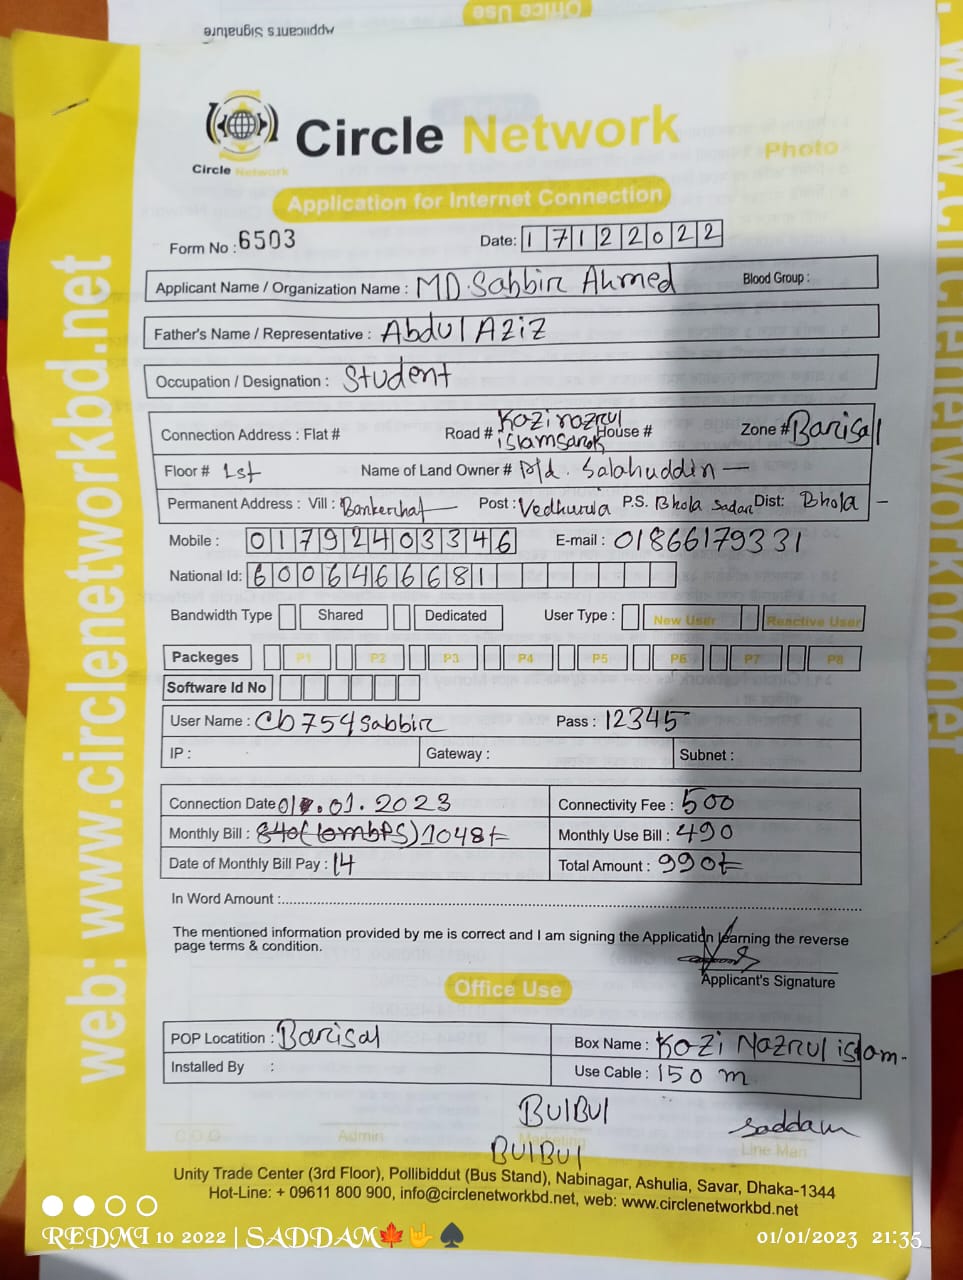 Applicant's Signature
Office Use
Circle Network
Circle Network
Photo
Application for Internet Connection
Form No : 6503
Date: 17122022
Applicant Name / Organization Name : MD. Sabbir Ahmed Blood Group :
Father's Name / Representative : Abdul Aziz
Occupation / Designation : Student
Connection Address : Flat # Road # Kazi nazrul islam sarok House # Zone # Barisal
Floor # 1st Name of Land Owner # Md. Salahuddin
Permanent Address : Vill : Bankerhat Post : Vedhuria P.S. Bhola Sadar Dist: Bhola
Mobile : 01792403346 E-mail : 01866179331
National Id: 6006466681
Bandwidth Type Shared Dedicated User Type : New User Reactive User
Packeges P1 P2 P3 P4 P5 P6 P7 P8
Software Id No
User Name : Cb754sabbir Pass : 12345
IP : Gateway : Subnet :
Connection Date 01.01.2023 Connectivity Fee : 500
Monthly Bill : 840 (10mbps) 1048 Monthly Use Bill : 490
Date of Monthly Bill Pay : 14 Total Amount : 990
In Word Amount :
The mentioned information provided by me is correct and I am signing the Application learning the reverse
page terms & condition.
Applicant's Signature
Office Use
POP Locatition : Barisal Box Name : Kozi Nazrul islam
Installed By : Use Cable : 150 m
BUlBUl
BUlBUl
saddam
C.O.O Admin Marketing Line Man
Unity Trade Center (3rd Floor), Pollibiddut (Bus Stand), Nabinagar, Ashulia, Savar, Dhaka-1344
Hot-Line: + 09611 800 900, info@circlenetworkbd.net, web: www.circlenetworkbd.net
web: www.circlenetworkbd.net
REDMI 10 2022 | SADDAM🍁🤟♠
01/01/2023 21:35